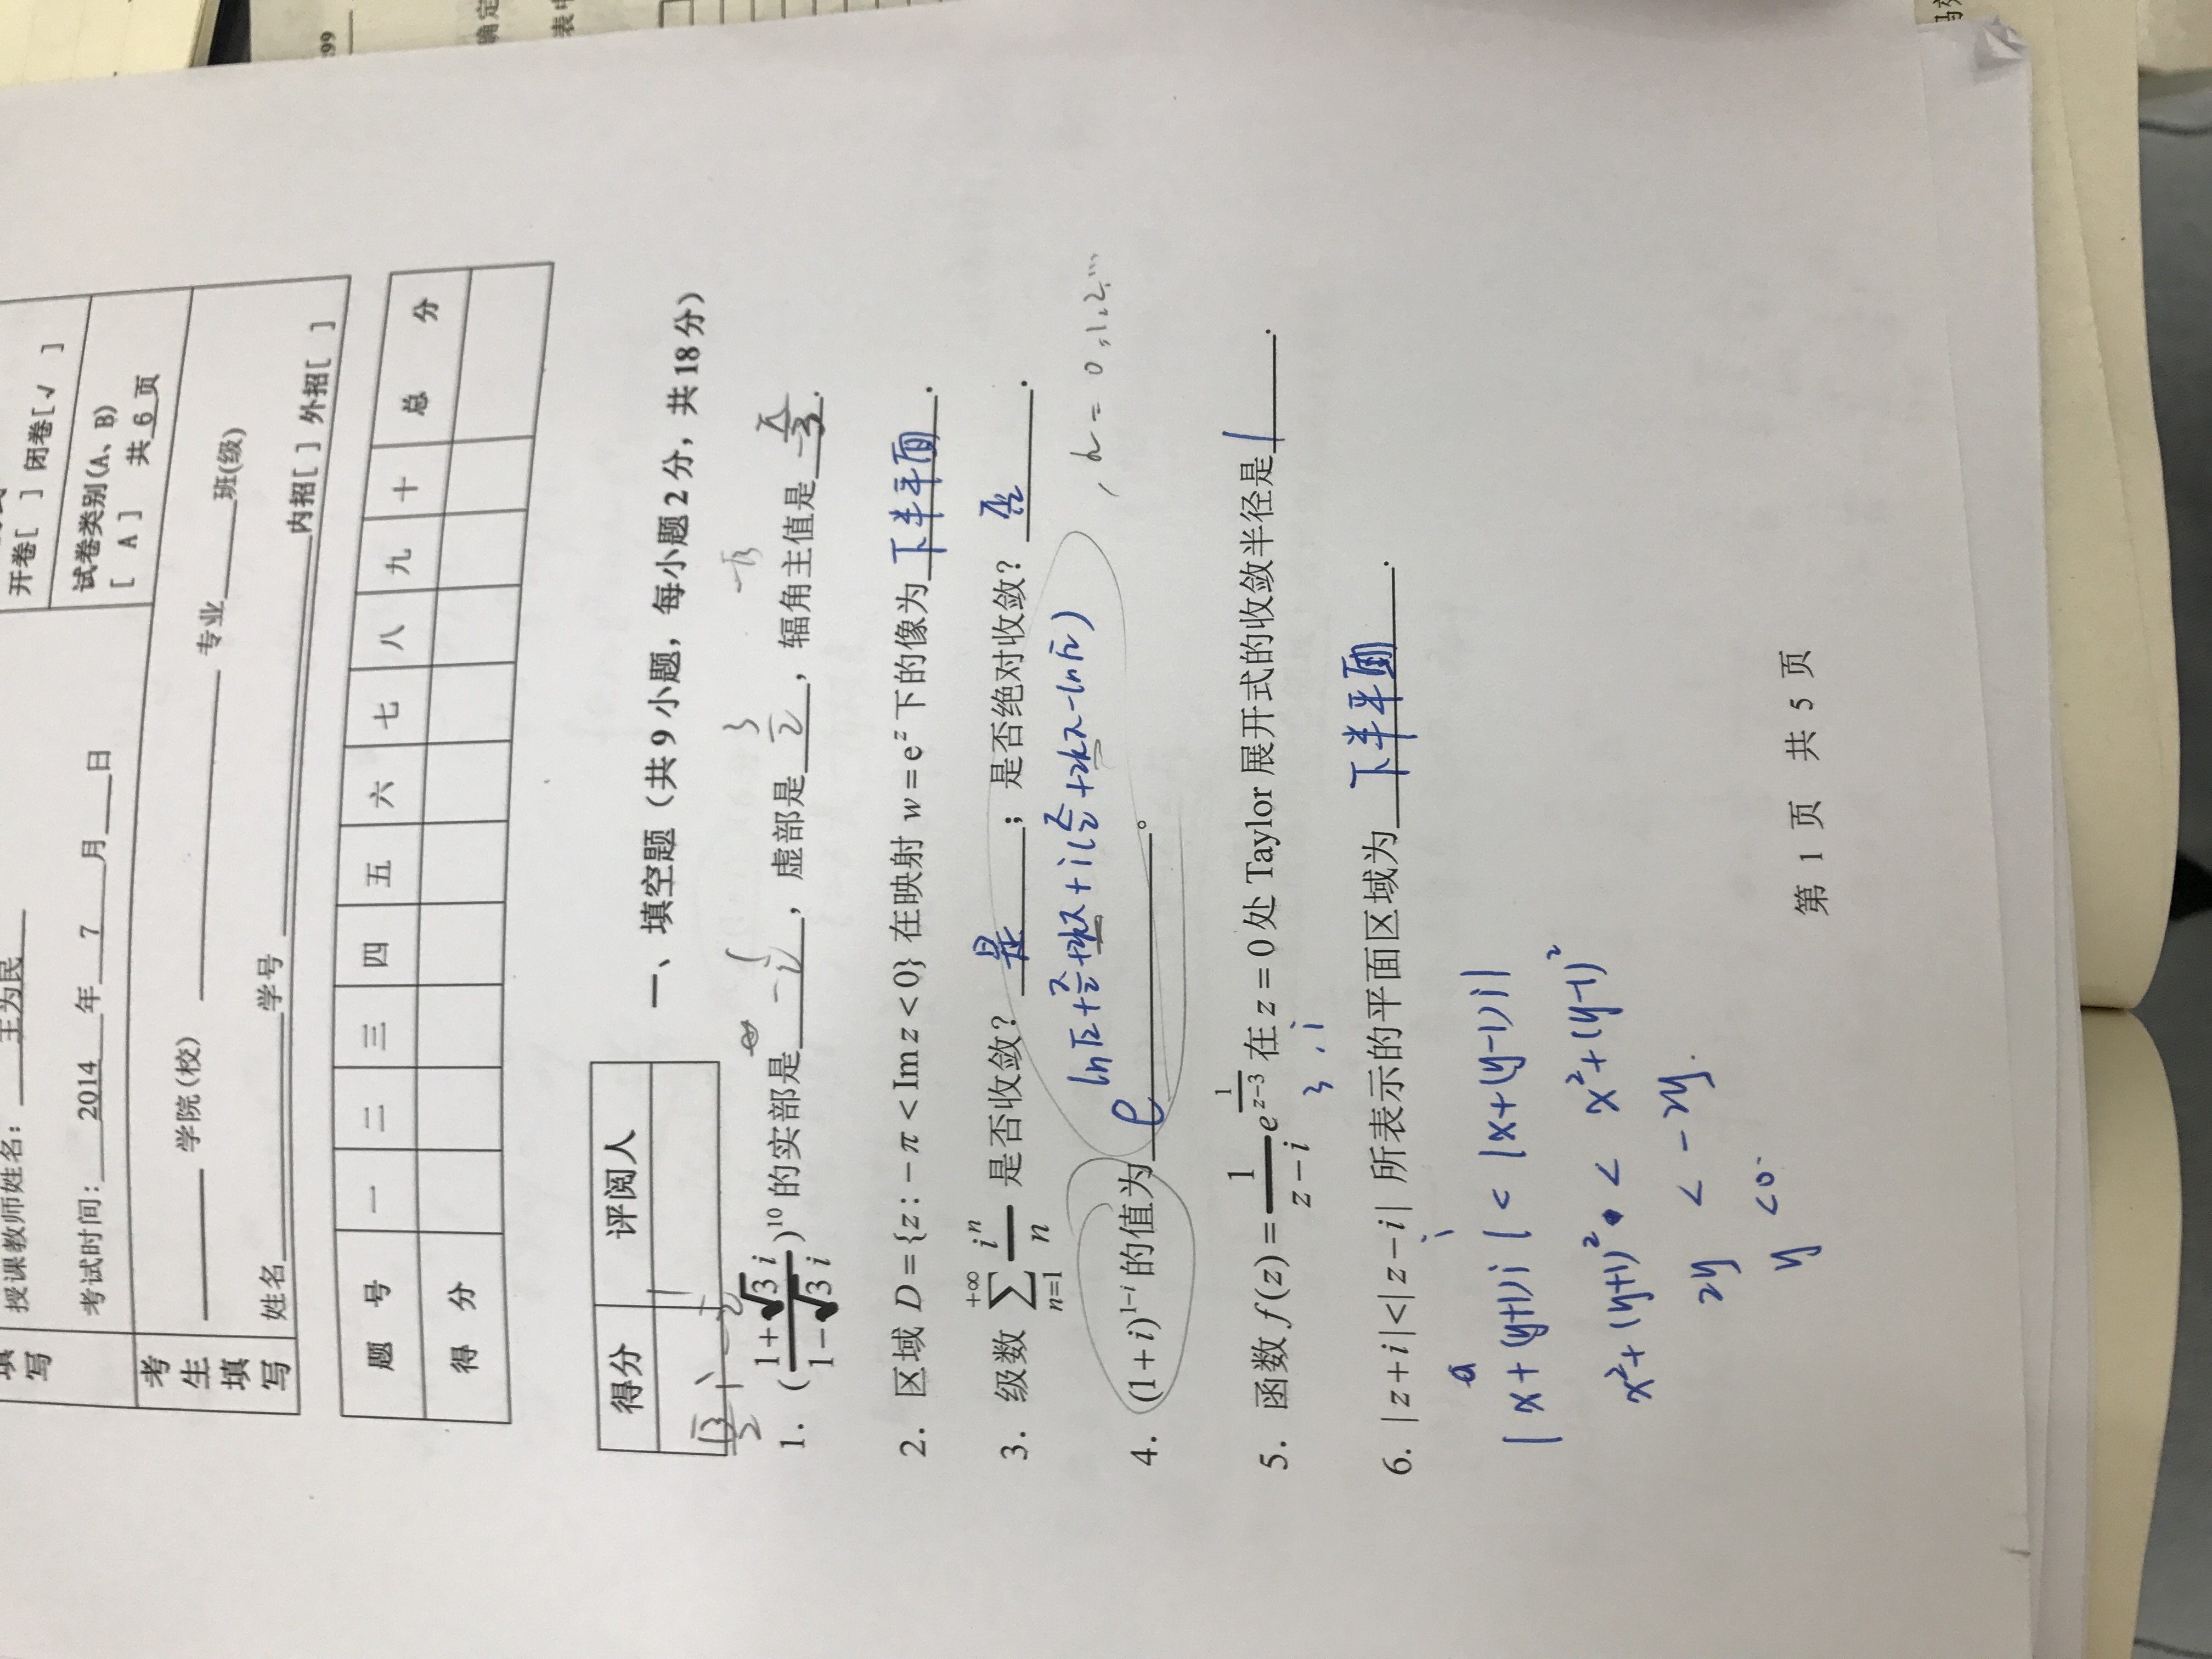 填写
授课教师姓名： 王为民
开卷[ ] 闭卷[√ ]
考试时间: 2014 年 7 月 日
试卷类别(A、B)
[ A ] 共 6 页
考生填写
学院(校) 专业 班(级)
姓名 学号 内招[ ] 外招[ ]
题 号 一 二 三 四 五 六 七 八 九 十 总 分
得 分
得分 评阅人
一、填空题（共 9 小题，每小题 2 分，共 18 分）
√3/2 i - 1/2
1. ((1+√3 i)/(1-√3 i))^10 的实部是 -1/2 ，虚部是 3/2 ，辐角主值是 -π/3 .
-√3
2. 区域 D = {z : -π < Im z < 0} 在映射 w = e^z 下的像为 下半平面 .
3. 级数 ∑_{n=1}^{+∞} i^n/n 是否收敛？ 是 ；是否绝对收敛？ 否 .
4. (1+i)^{1-i} 的值为 e^{ln√2+π/2+2kπ+i(π/2+2kπ-ln√2)} 。 , k = 0,1,2,...
5. 函数 f(z) = 1/(z-i) e^{1/(z-3)} 在 z = 0 处 Taylor 展开式的收敛半径是 1 .
3 , i
6. |z+i|<|z-i| 所表示的平面区域为 下半平面 .
a i
|x+(y+1)i| < |x+(y-1)i|
x²+(y+1)² < x²+(y-1)²
2y < -2y.
y <0.
第 1 页 共 5 页
299
确定
表中